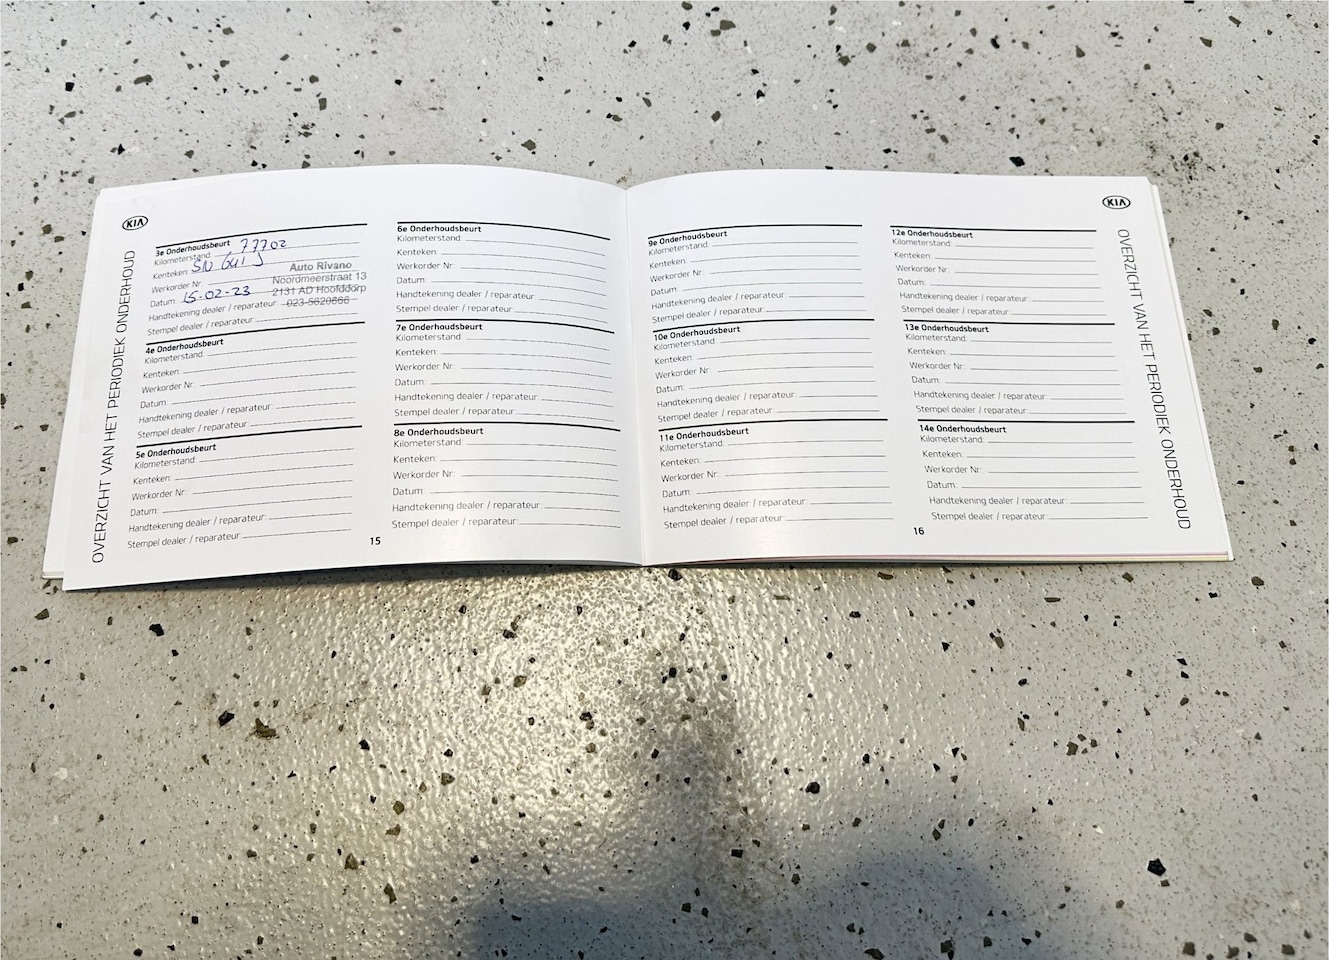 KIA
OVERZICHT VAN HET PERIODIEK ONDERHOUD
3e Onderhoudsbeurt
Kilometerstand: 77702
Kenteken:
Werkorder Nr:
Datum: 15-02-23
Handtekening dealer / reparateur:
Stempel dealer / reparateur:
Auto Rivano
Noordmeerstraat 13
2131 AD Hoofddorp
023-5620666
4e Onderhoudsbeurt
Kilometerstand:
Kenteken:
Werkorder Nr:
Datum:
Handtekening dealer / reparateur:
Stempel dealer / reparateur:
5e Onderhoudsbeurt
Kilometerstand:
Kenteken:
Werkorder Nr:
Datum:
Handtekening dealer / reparateur:
Stempel dealer / reparateur:
6e Onderhoudsbeurt
Kilometerstand:
Kenteken:
Werkorder Nr:
Datum:
Handtekening dealer / reparateur:
Stempel dealer / reparateur:
7e Onderhoudsbeurt
Kilometerstand:
Kenteken:
Werkorder Nr:
Datum:
Handtekening dealer / reparateur:
Stempel dealer / reparateur:
8e Onderhoudsbeurt
Kilometerstand:
Kenteken:
Werkorder Nr:
Datum:
Handtekening dealer / reparateur:
Stempel dealer / reparateur:
15
9e Onderhoudsbeurt
Kilometerstand:
Kenteken:
Werkorder Nr:
Datum:
Handtekening dealer / reparateur:
Stempel dealer / reparateur:
10e Onderhoudsbeurt
Kilometerstand:
Kenteken:
Werkorder Nr:
Datum:
Handtekening dealer / reparateur:
Stempel dealer / reparateur:
11e Onderhoudsbeurt
Kilometerstand:
Kenteken:
Werkorder Nr:
Datum:
Handtekening dealer / reparateur:
Stempel dealer / reparateur:
12e Onderhoudsbeurt
Kilometerstand:
Kenteken:
Werkorder Nr:
Datum:
Handtekening dealer / reparateur:
Stempel dealer / reparateur:
13e Onderhoudsbeurt
Kilometerstand:
Kenteken:
Werkorder Nr:
Datum:
Handtekening dealer / reparateur:
Stempel dealer / reparateur:
14e Onderhoudsbeurt
Kilometerstand:
Kenteken:
Werkorder Nr:
Datum:
Handtekening dealer / reparateur:
Stempel dealer / reparateur:
16
KIA
OVERZICHT VAN HET PERIODIEK ONDERHOUD